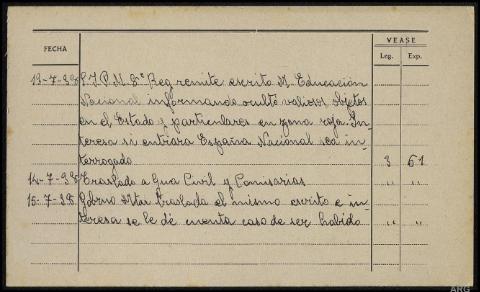 VEASE
FECHA
Leg. Exp.
13-7-38 S.I.P.M. 8ª Reg remite escrito M. Educación
Nacional informando ocultó valiosos objetos
en el Estado y particulares en zona roja. In-
teresa si entrara España Nacional sea in-
terrogado 3 61
14-7-38 Traslado a Gua Civil y Comisarias " "
15-7-38 Gobrno Mtar traslada el mismo escrito e in-
teresa se le dé cuenta caso de ser habido " "
ARG